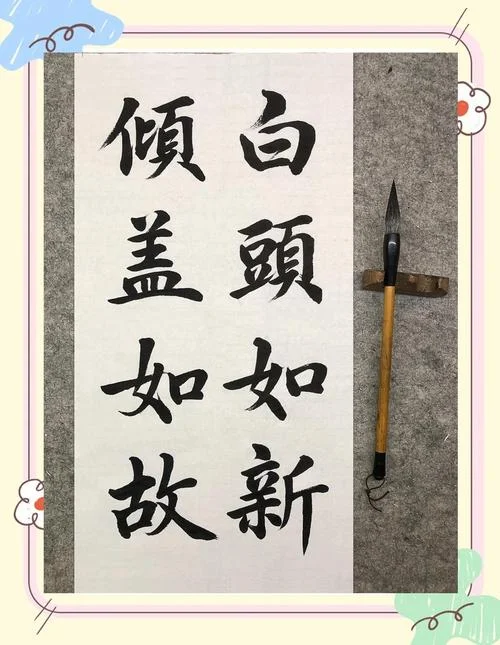 白頭如新
傾盖如故